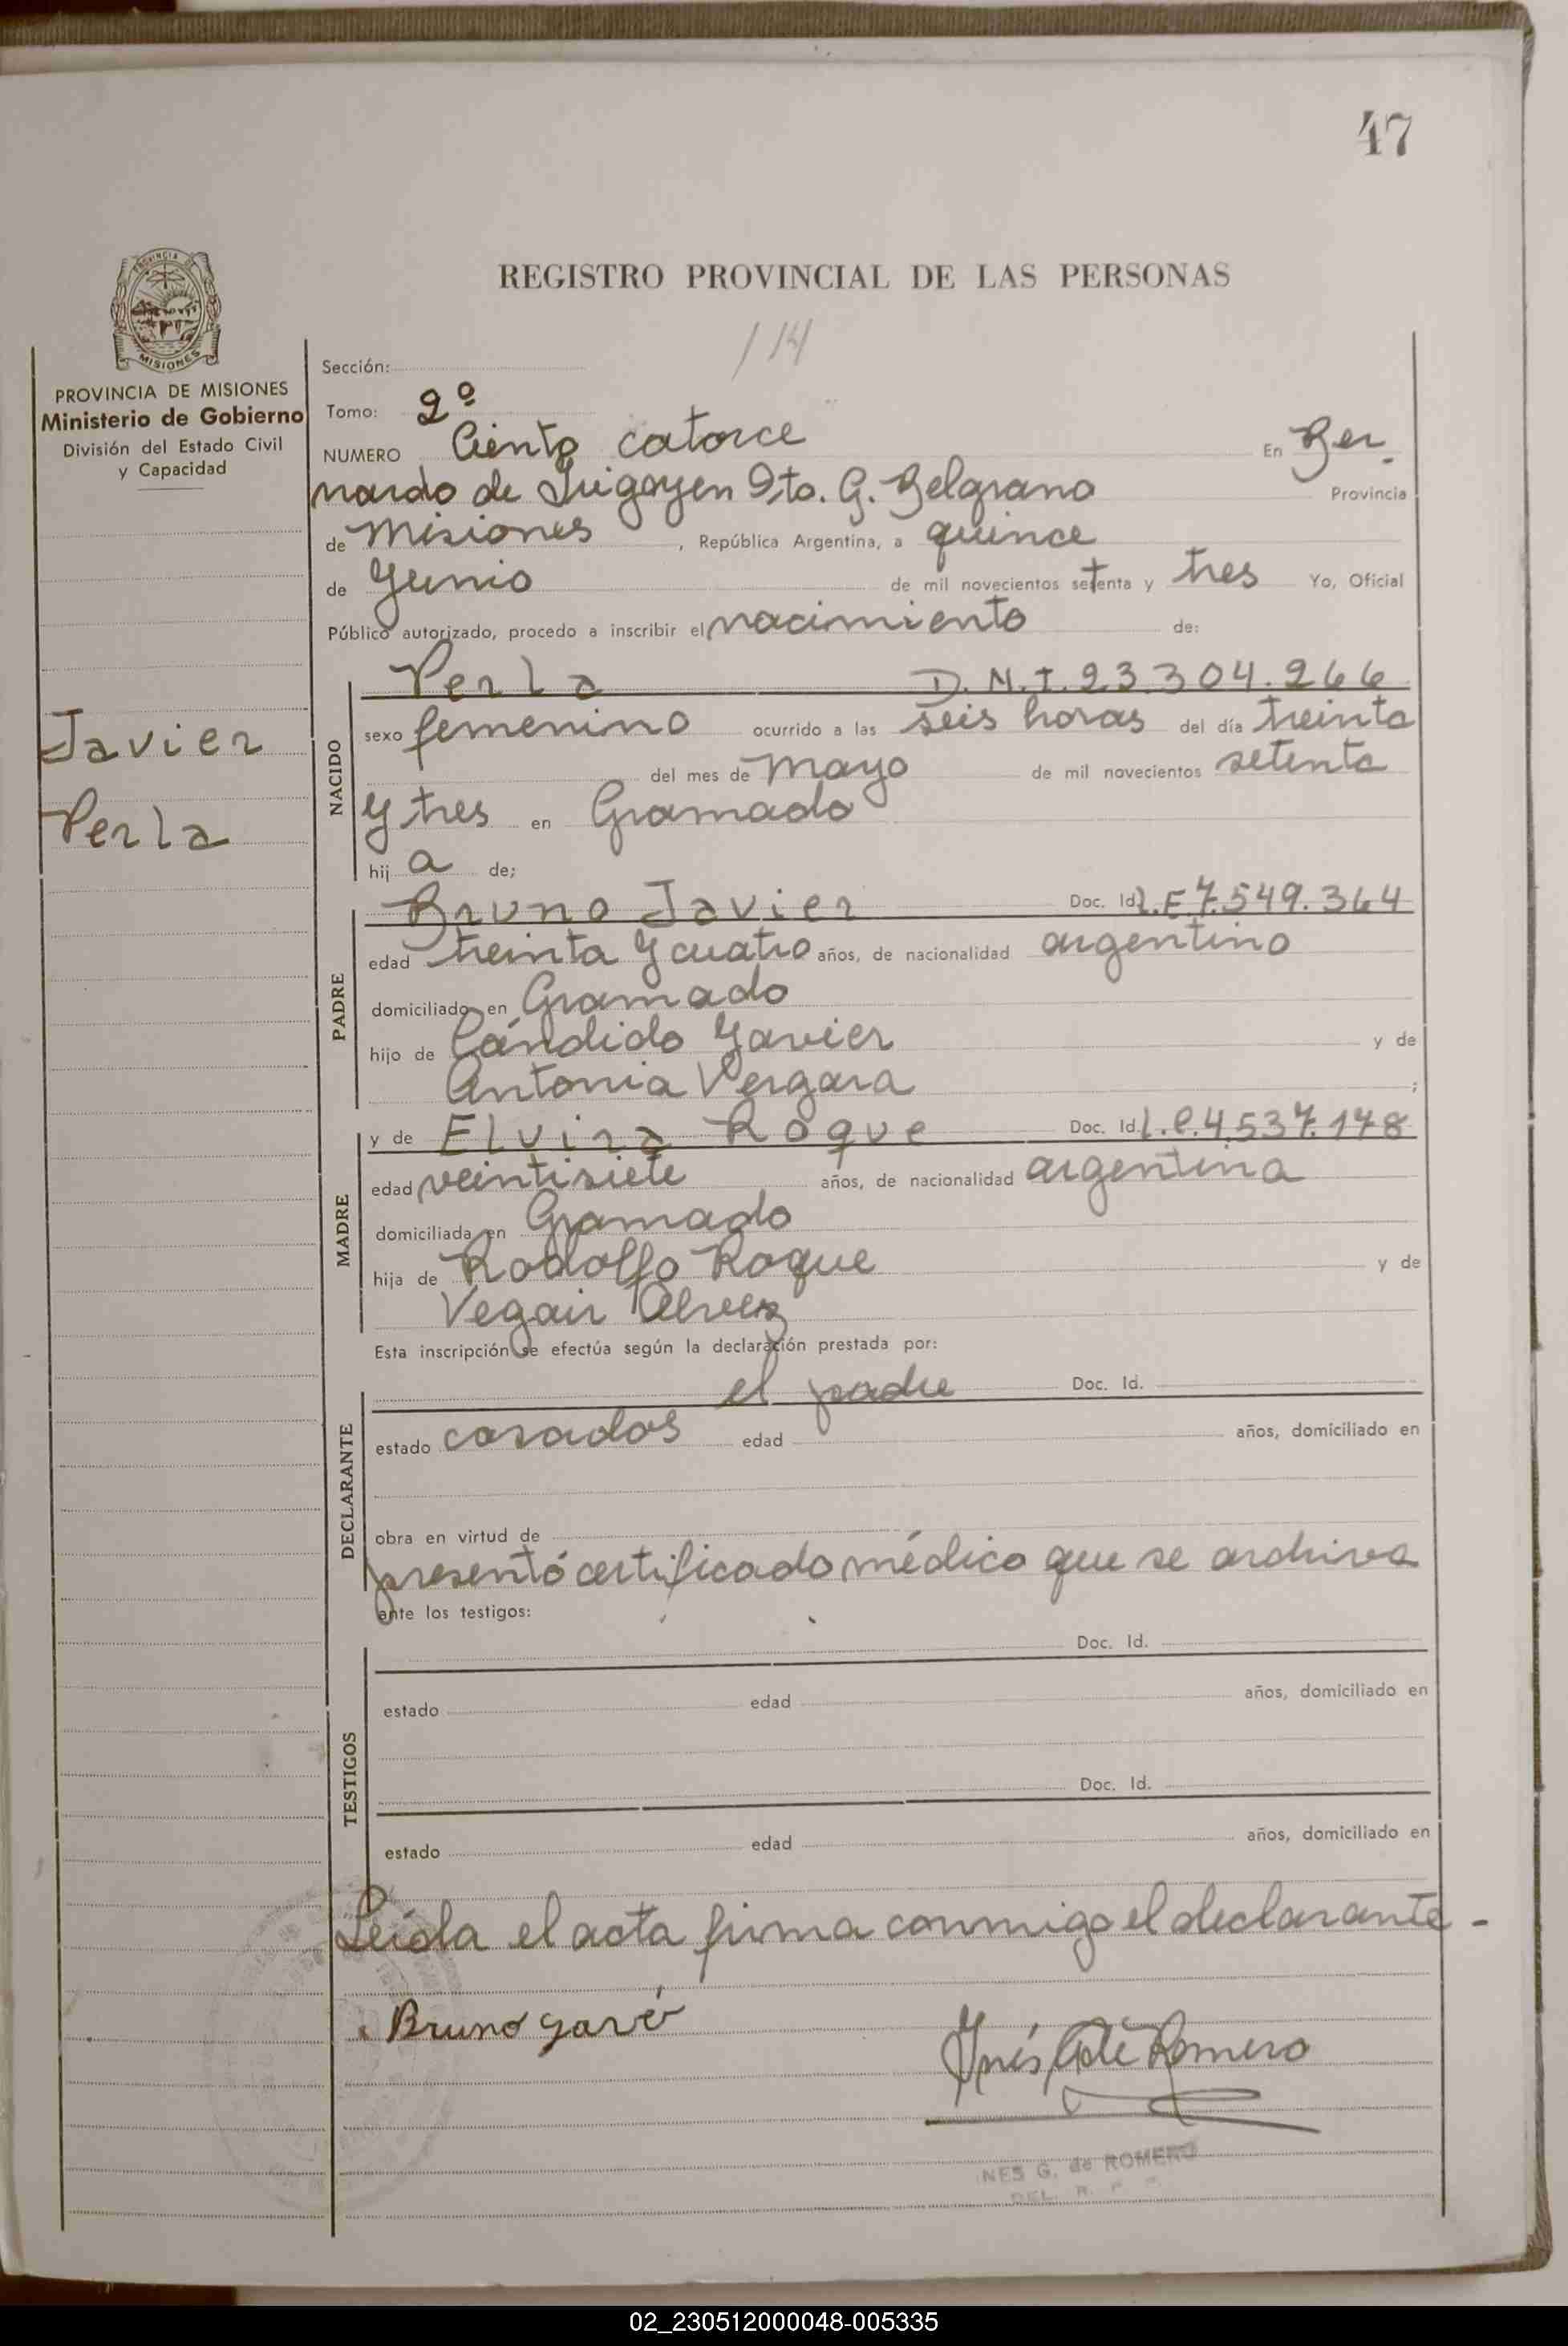 47
REGISTRO PROVINCIAL DE LAS PERSONAS
114
PROVINCIA DE
MISIONES
PROVINCIA DE MISIONES
Ministerio de Gobierno
División del Estado Civil
y Capacidad
Javier
Perla
Sección:
Tomo: 2º
NUMERO Ciento catorce En Ber-
nardo de Irigoyen Dto. G. Belgrano Provincia
de Misiones, República Argentina, a quince
de Junio de mil novecientos setenta y tres Yo, Oficial
Público autorizado, procedo a inscribir el nacimiento de:
NACIDO
Perla D.N.I. 23.304.266
sexo femenino ocurrido a las seis horas del día treinta
del mes de Mayo de mil novecientos setenta
y tres en Gramado
hij a de;
PADRE
Bruno Javier Doc. Id. L.E 7.549.364
edad treinta y cuatro años, de nacionalidad argentino
domiciliado en Gramado
hijo de Cándido Javier y de
Antonia Vergara ;
MADRE
y de Elvira Roque Doc. Id. L.C. 4.537.178
edad veintisiete años, de nacionalidad argentina
domiciliada en Gramado
hija de Rodolfo Roque y de
Vegair
Esta inscripción se efectúa según la declaración prestada por:
DECLARANTE
el padre Doc. Id.
estado casados edad años, domiciliado en
obra en virtud de
presentó certificado médico que se archiva
ante los testigos:
TESTIGOS
Doc. Id.
estado edad años, domiciliado en
Doc. Id.
estado edad años, domiciliado en
Leída el acta firma conmigo el declarante -
Bruno Javié
Inés G de Romero
INES G. de ROMERO
DEL. R. P.
02_230512000048-005335